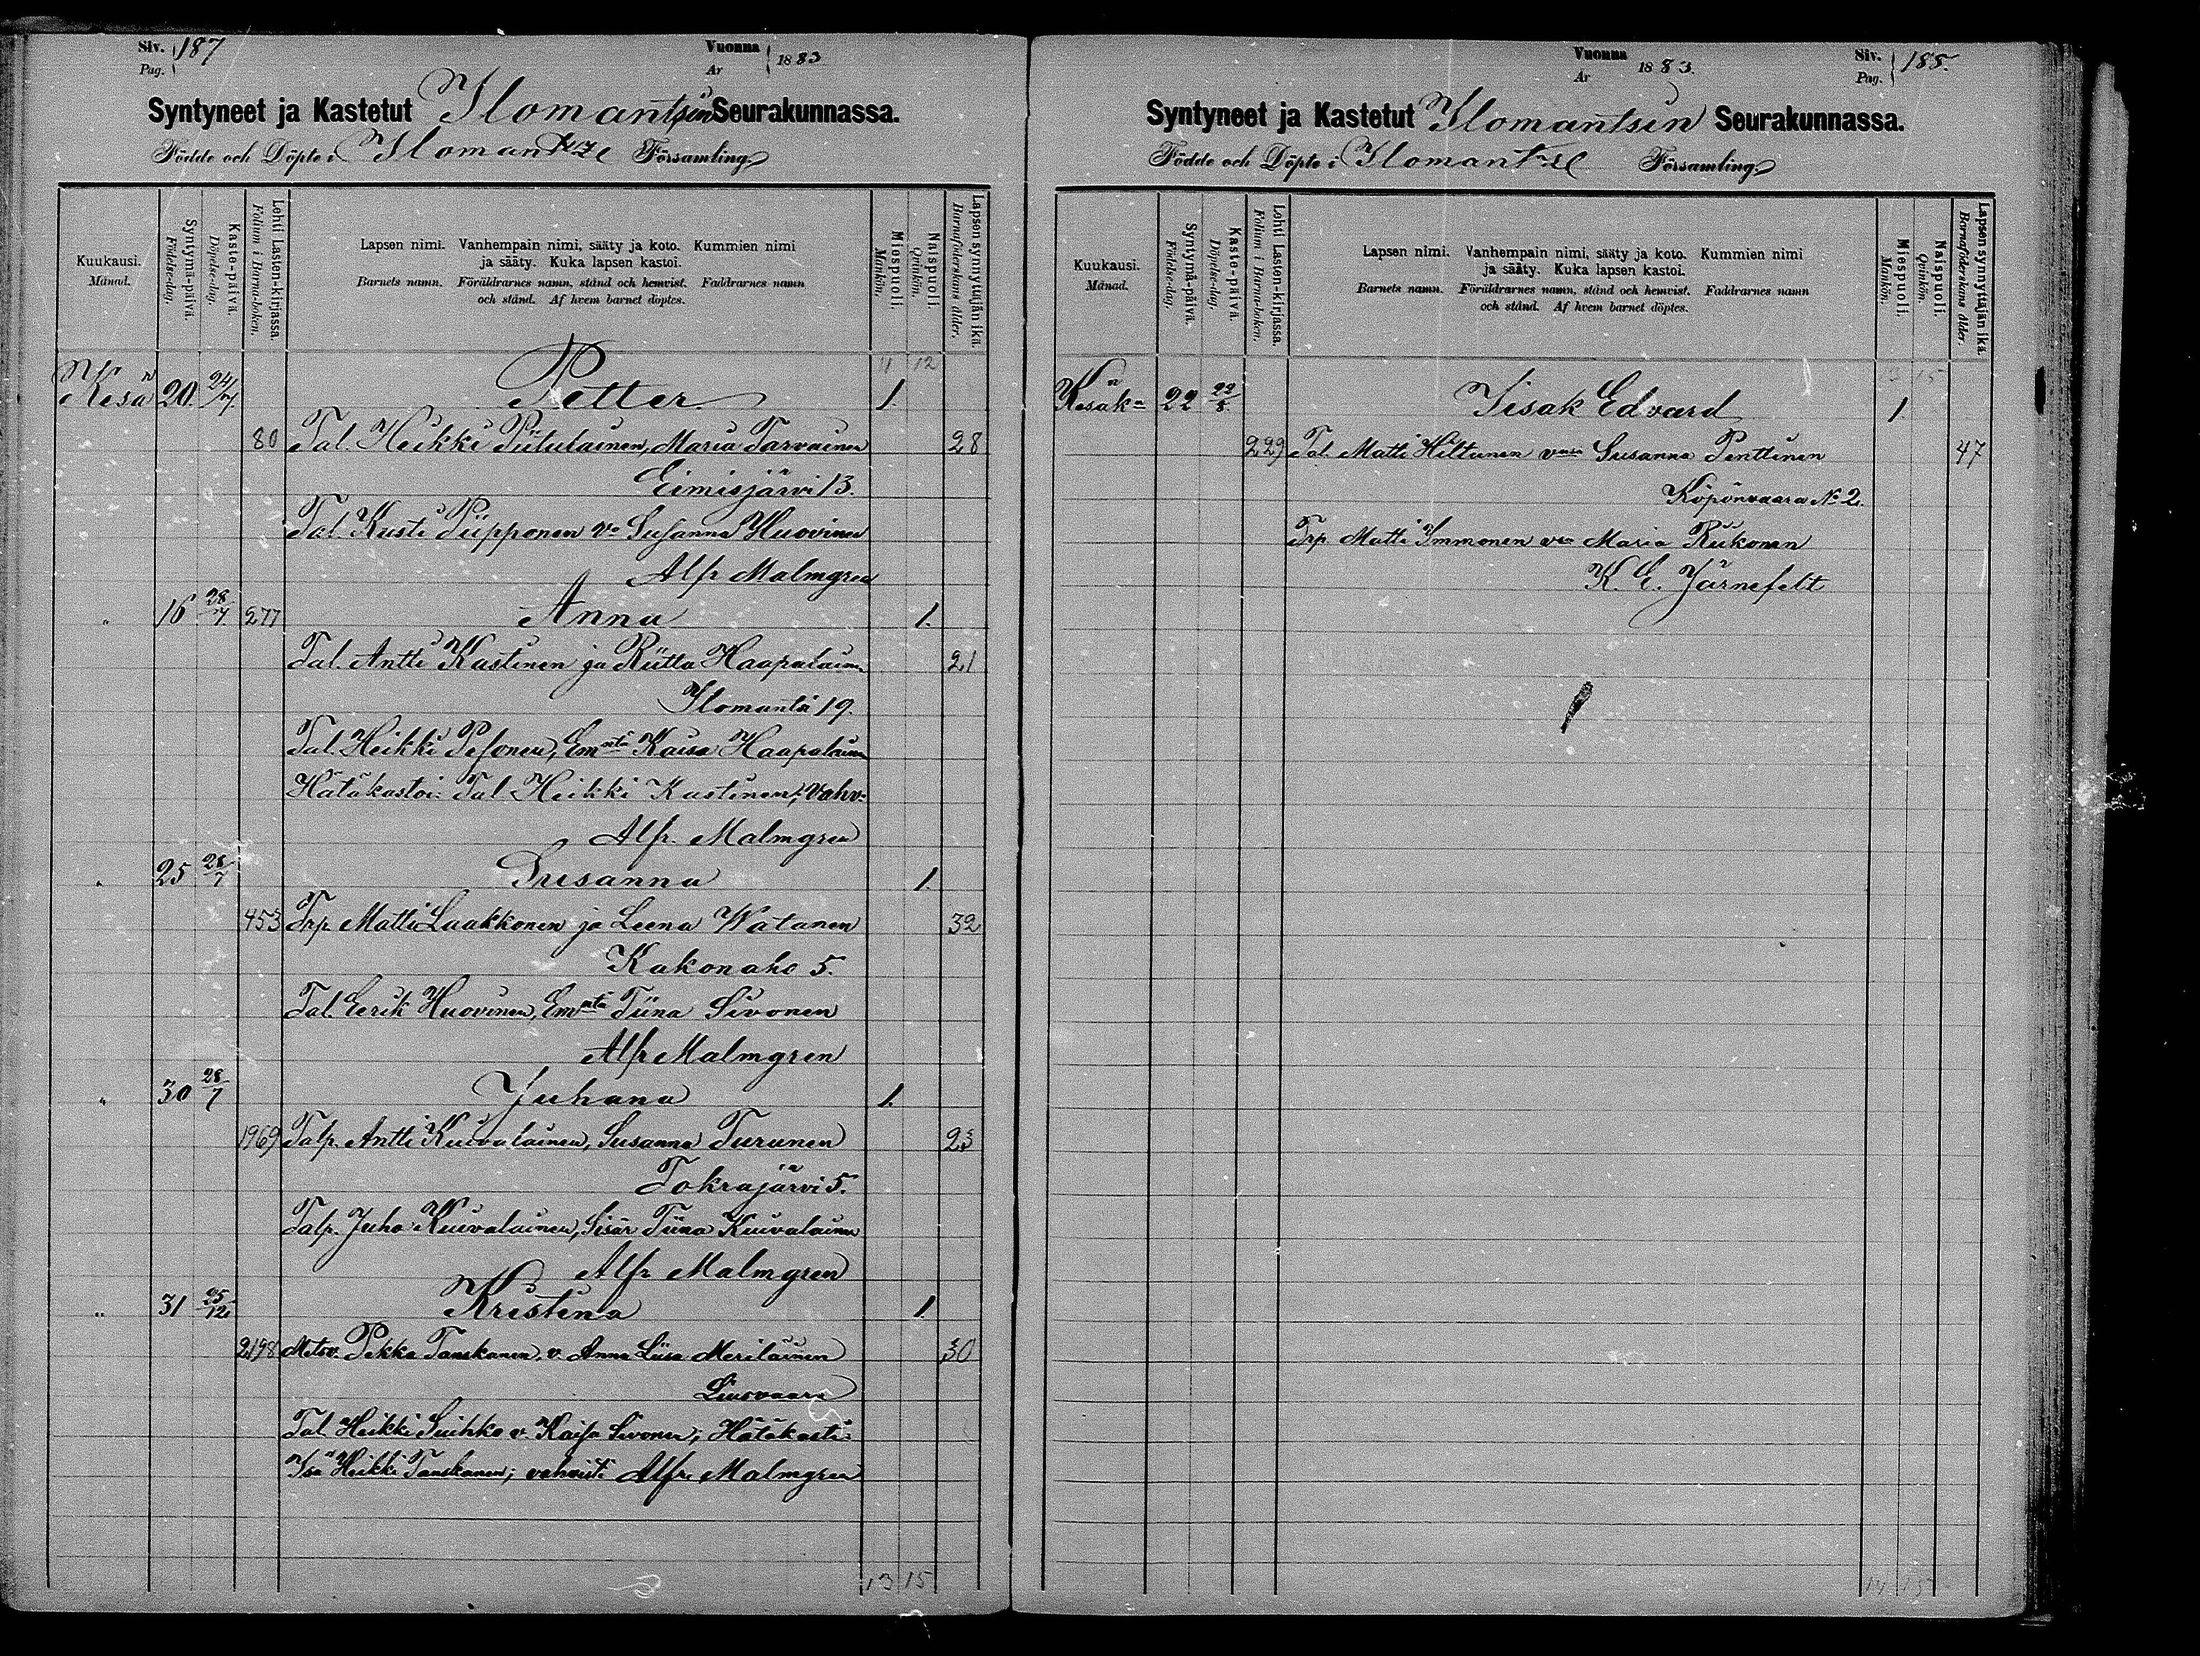 Siv. Pag. 187
Vuonna År 1883
Syntyneet ja Kastetut Ilomantsin Seurakunnassa.
Födde och Döpte i Ilomantze Församling
Kuukausi. Månad.
Syntymä-päivä. Födelse-dag.
Kaste-päivä. Döpelse-dag.
Lehti Lasten-kirjassa. Folium i Barna-boken.
Lapsen nimi. Vanhempain nimi, sääty ja koto. Kummien nimi
ja sääty. Kuka lapsen kastoi.
Barnets namn. Föräldrarnes namn, stånd och hemvist. Faddrarnes namn
och stånd. Af hvem barnet döptes.
Miespuoli. Mankön.
Naispuoli. Qvinkön.
Lapsen synnyttäjän ikä. Barnaföderskans ålder.
11 12
Kesäk 20. 24/7. Petter 1.
80 Tal. Heikki Piitulainen, Maria Tarvainen 28
Eimisjärvi 13.
Tal. Kusti Piipponen vo Susanna Huovinen
Alfr Malmgren
" 16 28/7. 277 Anna 1.
Tal. Antti Kastinen ja Riitta Haapalainen 21
Ilomantsi 19.
Tal. Heikki Pesonen, Emntä Kaisa Haapalainen
Hätäkastoi: Tal Heikki Kastinen; Vahv:
Alfr. Malmgren
" 25 28/7 Susanna 1.
453 Trp. Matti Laakkonen ja Leena Watanen 32
Kakonaho 5.
Tal. Eerik Huovinen, Emntä Tiina Sivonen
Alfr Malmgren
" 30 28/7 Juhana 1.
1969 Talp. Antti Kuivalainen, Susanna Turunen 23
Tokrajärvi 5.
Talp. Juho Kuivalainen, Sisar Tiina Kuivalainen
Alfr Malmgren
" 31 25/12 Kristina 1.
2198 Metsv. Pekka Tanskanen, v. Anna Liisa Meriläinen 30
Liusvaara
Tal Heikki Suihko v. Kaisa Sivonen; Hätäkasti:
Isä Heikki Tanskanen; vahvisti Alfr. Malmgren
13 15
Vuonna År 1883.
Siv. Pag. 188.
Syntyneet ja Kastetut Ilomantsin Seurakunnassa.
Födde och Döpte i Ilomantze Församling
Kuukausi. Månad.
Syntymä-päivä. Födelse-dag.
Kaste-päivä. Döpelse-dag.
Lehti Lasten-kirjassa. Folium i Barna-boken.
Lapsen nimi. Vanhempain nimi, sääty ja koto. Kummien nimi
ja sääty. Kuka lapsen kastoi.
Barnets namn. Föräldrarnes namn, stånd och hemvist. Faddrarnes namn
och stånd. Af hvem barnet döptes.
Miespuoli. Mankön.
Naispuoli. Qvinkön.
Lapsen synnyttäjän ikä. Barnaföderskans ålder.
13 15
Kesäkn 22 22/8. Iisak Edvard 1
229 Tal. Matti Hiltunen vmsa Susanna Penttinen 47
Köpönvaara No 2.
Trp Matti Immonen vmo Maria Riikonen
K. E. Järnefelt
14 15